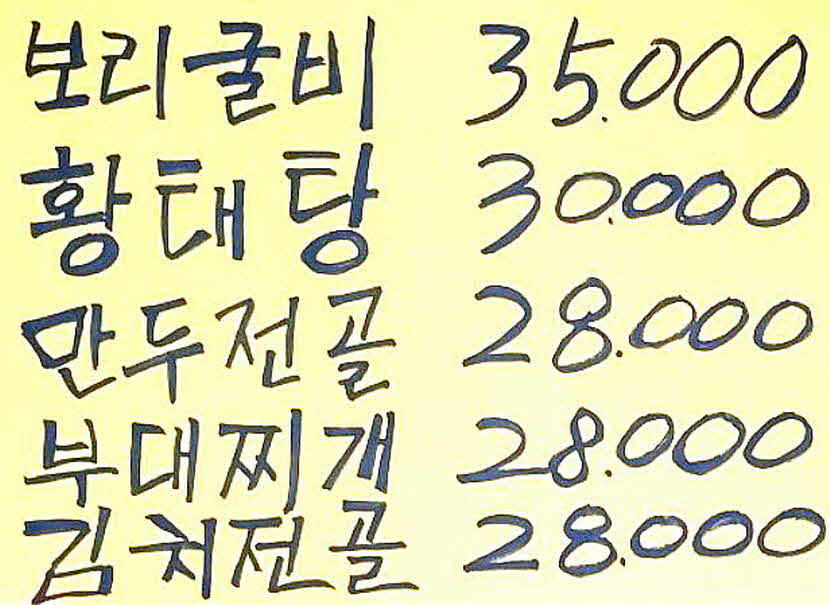 보리굴비 35.000
황태탕 30.000
만두전골 28.000
부대찌개 28.000
김치전골 28.000